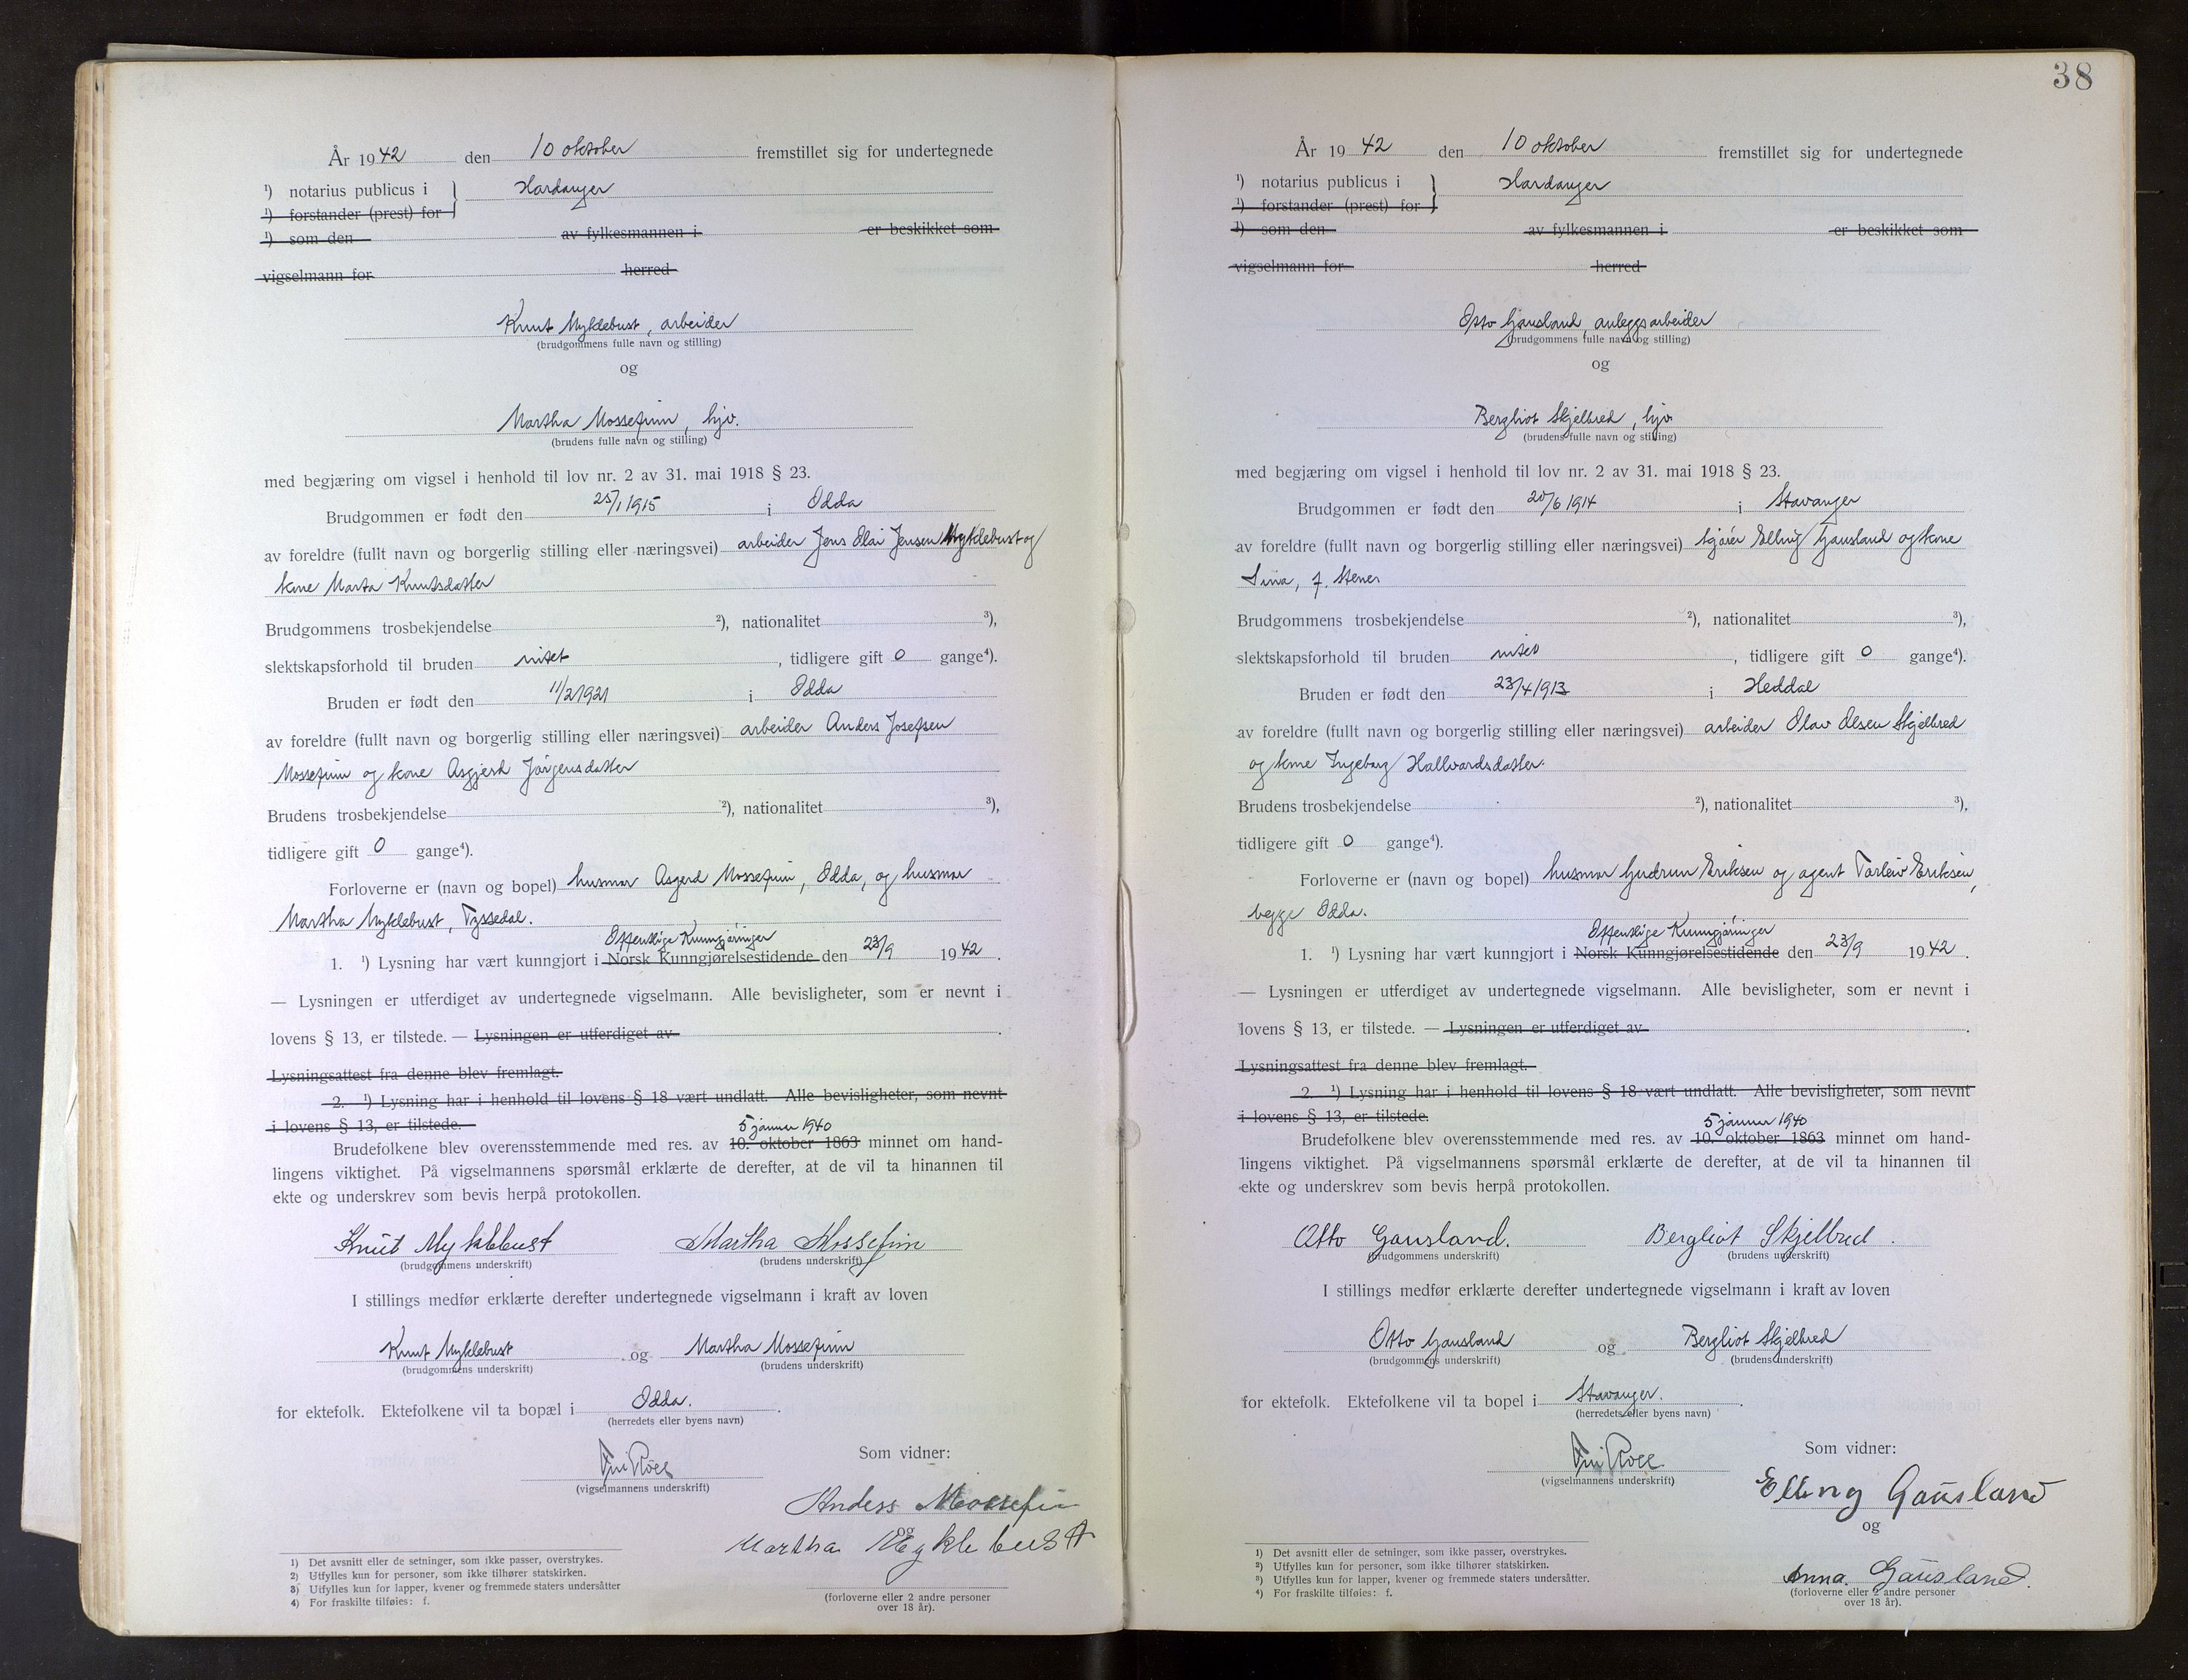 År 1942 den 10 oktober fremstillet sig for undertegnede
¹) notarius publicus i } Hardanger
¹) forstander (prest) for
¹) som den av fylkesmannen i er beskikket som
vigselmann for herred
Knut Myklebust, arbeider
(brudgommens fulle navn og stilling)
og
Martha Mossefinn, hjv.
(brudens fulle navn og stilling)
med begjæring om vigsel i henhold til lov nr. 2 av 31. mai 1918 § 23.
Brudgommen er født den 25/1 1915 i Odda
av foreldre (fullt navn og borgerlig stilling eller næringsvei) arbeider Jens Olai Jensen Myklebust og
kone Marta Knutsdatter
Brudgommens trosbekjendelse ²), nationalitet ³),
slektskapsforhold til bruden intet, tidligere gift 0 gange⁴).
Bruden er født den 11/2 1921 i Odda
av foreldre (fullt navn og borgerlig stilling eller næringsvei) arbeider Anders Josefsen
Mossefinn og kone Asgjerd Jørgensdatter
Brudens trosbekjendelse ²), nationalitet ³),
tidligere gift 0 gange⁴).
Forloverne er (navn og bopel) husmor Asgerd Mossefinn, Odda, og husmor
Martha Myklebust, Tyssedal.
Offentlige Kunngjøringer
1. ¹) Lysning har vært kunngjort i Norsk Kunngjørelsestidende den 23/9 1942.
— Lysningen er utferdiget av undertegnede vigselmann. Alle bevisligheter, som er nevnt i
lovens § 13, er tilstede. — Lysningen er utferdiget av .
Lysningsattest fra denne blev fremlagt.
2. ¹) Lysning har i henhold til lovens § 18 vært undlatt. Alle bevisligheter, som nevnt
i lovens § 13, er tilstede.
5 januar 1940
Brudefolkene blev overensstemmende med res. av 10. oktober 1863 minnet om hand-
lingens viktighet. På vigselmannens spørsmål erklærte de derefter, at de vil ta hinannen til
ekte og underskrev som bevis herpå protokollen.
Knut Myklebust Martha Mossefinn
(brudgommens underskrift) (brudens underskrift)
I stillings medfør erklærte derefter undertegnede vigselmann i kraft av loven
Knut Myklebust og Martha Mossefinn
(brudgommens underskrift) (brudens underskrift)
for ektefolk. Ektefolkene vil ta bopæl i Odda.
(herredets eller byens navn)
Som vidner:
(vigselmannens underskrift)
Anders Mossefin
og
Martha Myklebust
(forloverne eller 2 andre personer
over 18 år).
1) Det avsnitt eller de setninger, som ikke passer, overstrykes.
2) Utfylles kun for personer, som ikke tilhører statskirken.
3) Utfylles kun for lapper, kvener og fremmede staters undersåtter
4) For fraskilte tilføies: f.
38
År 1942 den 10 oktober fremstillet sig for undertegnede
¹) notarius publicus i } Hardanger
¹) forstander (prest) for
¹) som den av fylkesmannen i er beskikket som
vigselmann for herred
Otto Gausland, anleggsarbeider
(brudgommens fulle navn og stilling)
og
Bergliot Skjelbred, hjv
(brudens fulle navn og stilling)
med begjæring om vigsel i henhold til lov nr. 2 av 31. mai 1918 § 23.
Brudgommen er født den 20/6 1914 i Stavanger
av foreldre (fullt navn og borgerlig stilling eller næringsvei) kjører Elling Gausland og kone
Sina, f. Stenes
Brudgommens trosbekjendelse ²), nationalitet ³),
slektskapsforhold til bruden intet, tidligere gift 0 gange⁴).
Bruden er født den 23/4 1913 i Heddal
av foreldre (fullt navn og borgerlig stilling eller næringsvei) arbeider Olav Olsen Skjelbred
og kone Ingeborg Hallvardsdatter.
Brudens trosbekjendelse ²), nationalitet ³),
tidligere gift 0 gange⁴).
Forloverne er (navn og bopel) husmor Gudrun Eriksen og agent Torleiv Eriksen,
begge Odda.
Offentlige Kunngjøringer
1. ¹) Lysning har vært kunngjort i Norsk Kunngjørelsestidende den 23/9 1942.
— Lysningen er utferdiget av undertegnede vigselmann. Alle bevisligheter, som er nevnt i
lovens § 13, er tilstede. — Lysningen er utferdiget av .
Lysningsattest fra denne blev fremlagt.
2. ¹) Lysning har i henhold til lovens § 18 vært undlatt. Alle bevisligheter, som nevnt
i lovens § 13, er tilstede.
5 januar 1940
Brudefolkene blev overensstemmende med res. av 10. oktober 1863 minnet om hand-
lingens viktighet. På vigselmannens spørsmål erklærte de derefter, at de vil ta hinannen til
ekte og underskrev som bevis herpå protokollen.
Otto Gausland. Bergliot Skjelbred.
(brudgommens underskrift) (brudens underskrift)
I stillings medfør erklærte derefter undertegnede vigselmann i kraft av loven
Otto Gausland og Bergliot Skjelbred
(brudgommens underskrift) (brudens underskrift)
for ektefolk. Ektefolkene vil ta bopel i Stavanger.
(herredets eller byens navn)
Som vidner:
(vigselmannens underskrift)
Elling Gausland
og
Anna Gausland.
(forloverne eller 2 andre personer
over 18 år).
1) Det avsnitt eller de setninger, som ikke passer, overstrykes.
2) Utfylles kun for personer, som ikke tilhører statskirken.
3) Utfylles kun for lapper, kvener og fremmede staters undersåtter.
4) For fraskilte tilføies: f.